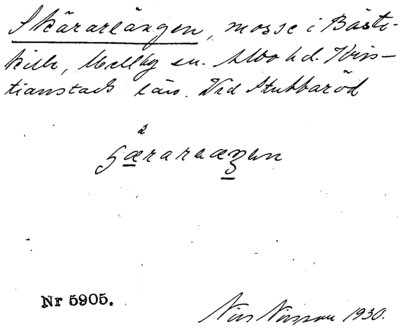 Skärarlängen, mosse i Båsti-
kille, Mellby sn. Albo hd. Kris-
tianstads län. Vid Stubbaröd
Nr 5905.
Nils Nilsson 1930.